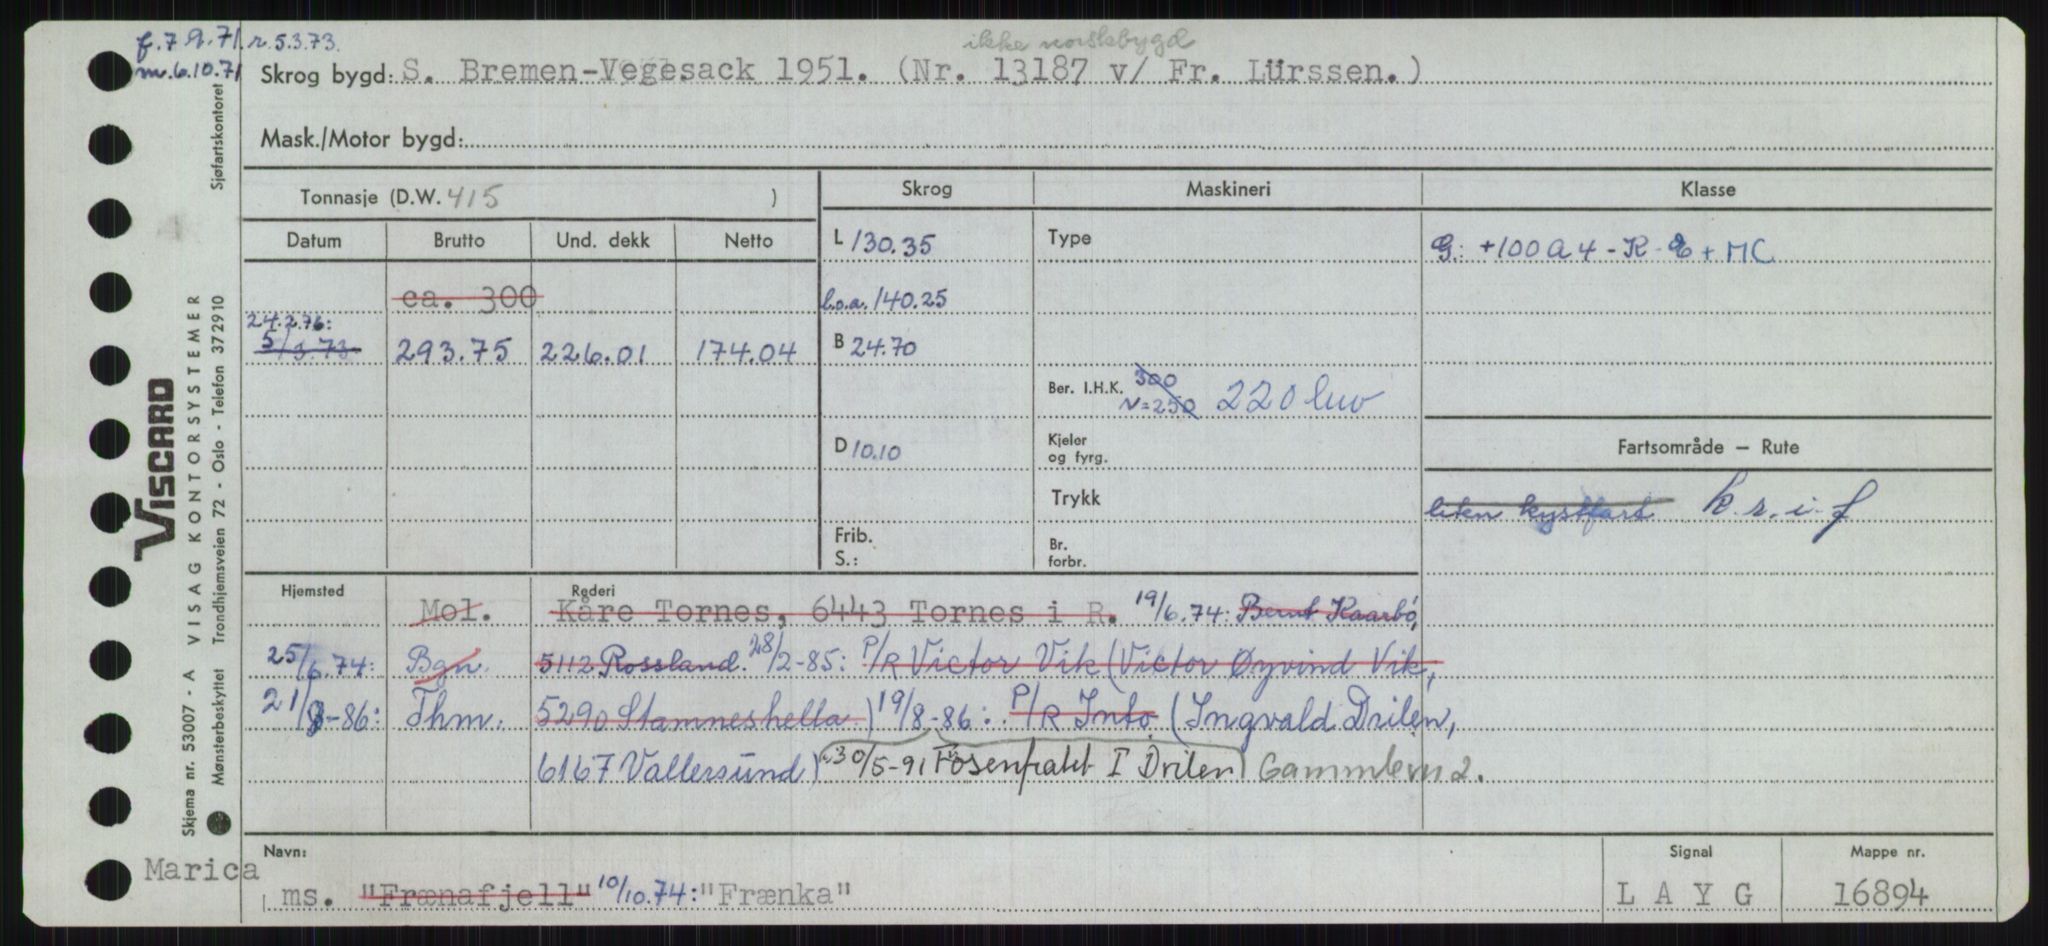 f.7.9.71. r.5.3.73.
m.6.10.71
ikke norskbygd
Skrog bygd: S. Bremen-Vegesack 1951. (Nr. 13187 v/ Fr. Lürssen.)
Mask./Motor bygd:
Tonnasje (D.W. 415 )
Skrog Maskineri Klasse
Datum Brutto Und. dekk Netto
L 130.35
Type
G: +100 A 4 - K - & + MC
ca. 300
l.o.a. 140.25
24.2.76:
5/3.73 293.75 226.01 174.04
B 24.70
Ber. I.H.K. 300
N=250 220 luv
D 10.10
Kjeler
og fyrg.
Fartsområde – Rute
Trykk
liten kystfart k.r.i.f
Frib.
S.:
Br.
forbr.
Hjemsted Rederi
Mol. Kåre Tornes, 6443 Tornes i R. 19/6.74: Bernt Kaarbø,
25/6.74: Bgn. 5112 Rossland. 28/2-85: P/R Victor Vik (Victor Øyvind Vik,
21/8-86: Thm. 5290 Stamneshella.) 19/8-86: P/R Into (Ingvald Drilen,
6167 Vallersund) 30/5-91 Fosenfrakt I Drilen) Gammlem 2.
Navn:
Signal
Mappe nr.
Marica
ms. "Frænafjell" 10/10.74: "Frænka"
L A Y G
16894
Skjema nr. 53007 - A VISAG KONTORSYSTEMER
VISCARD
Mønsterbeskyttet Trondhjemsveien 72 - Oslo - Telefon 37 29 10 Sjøfartskontoret